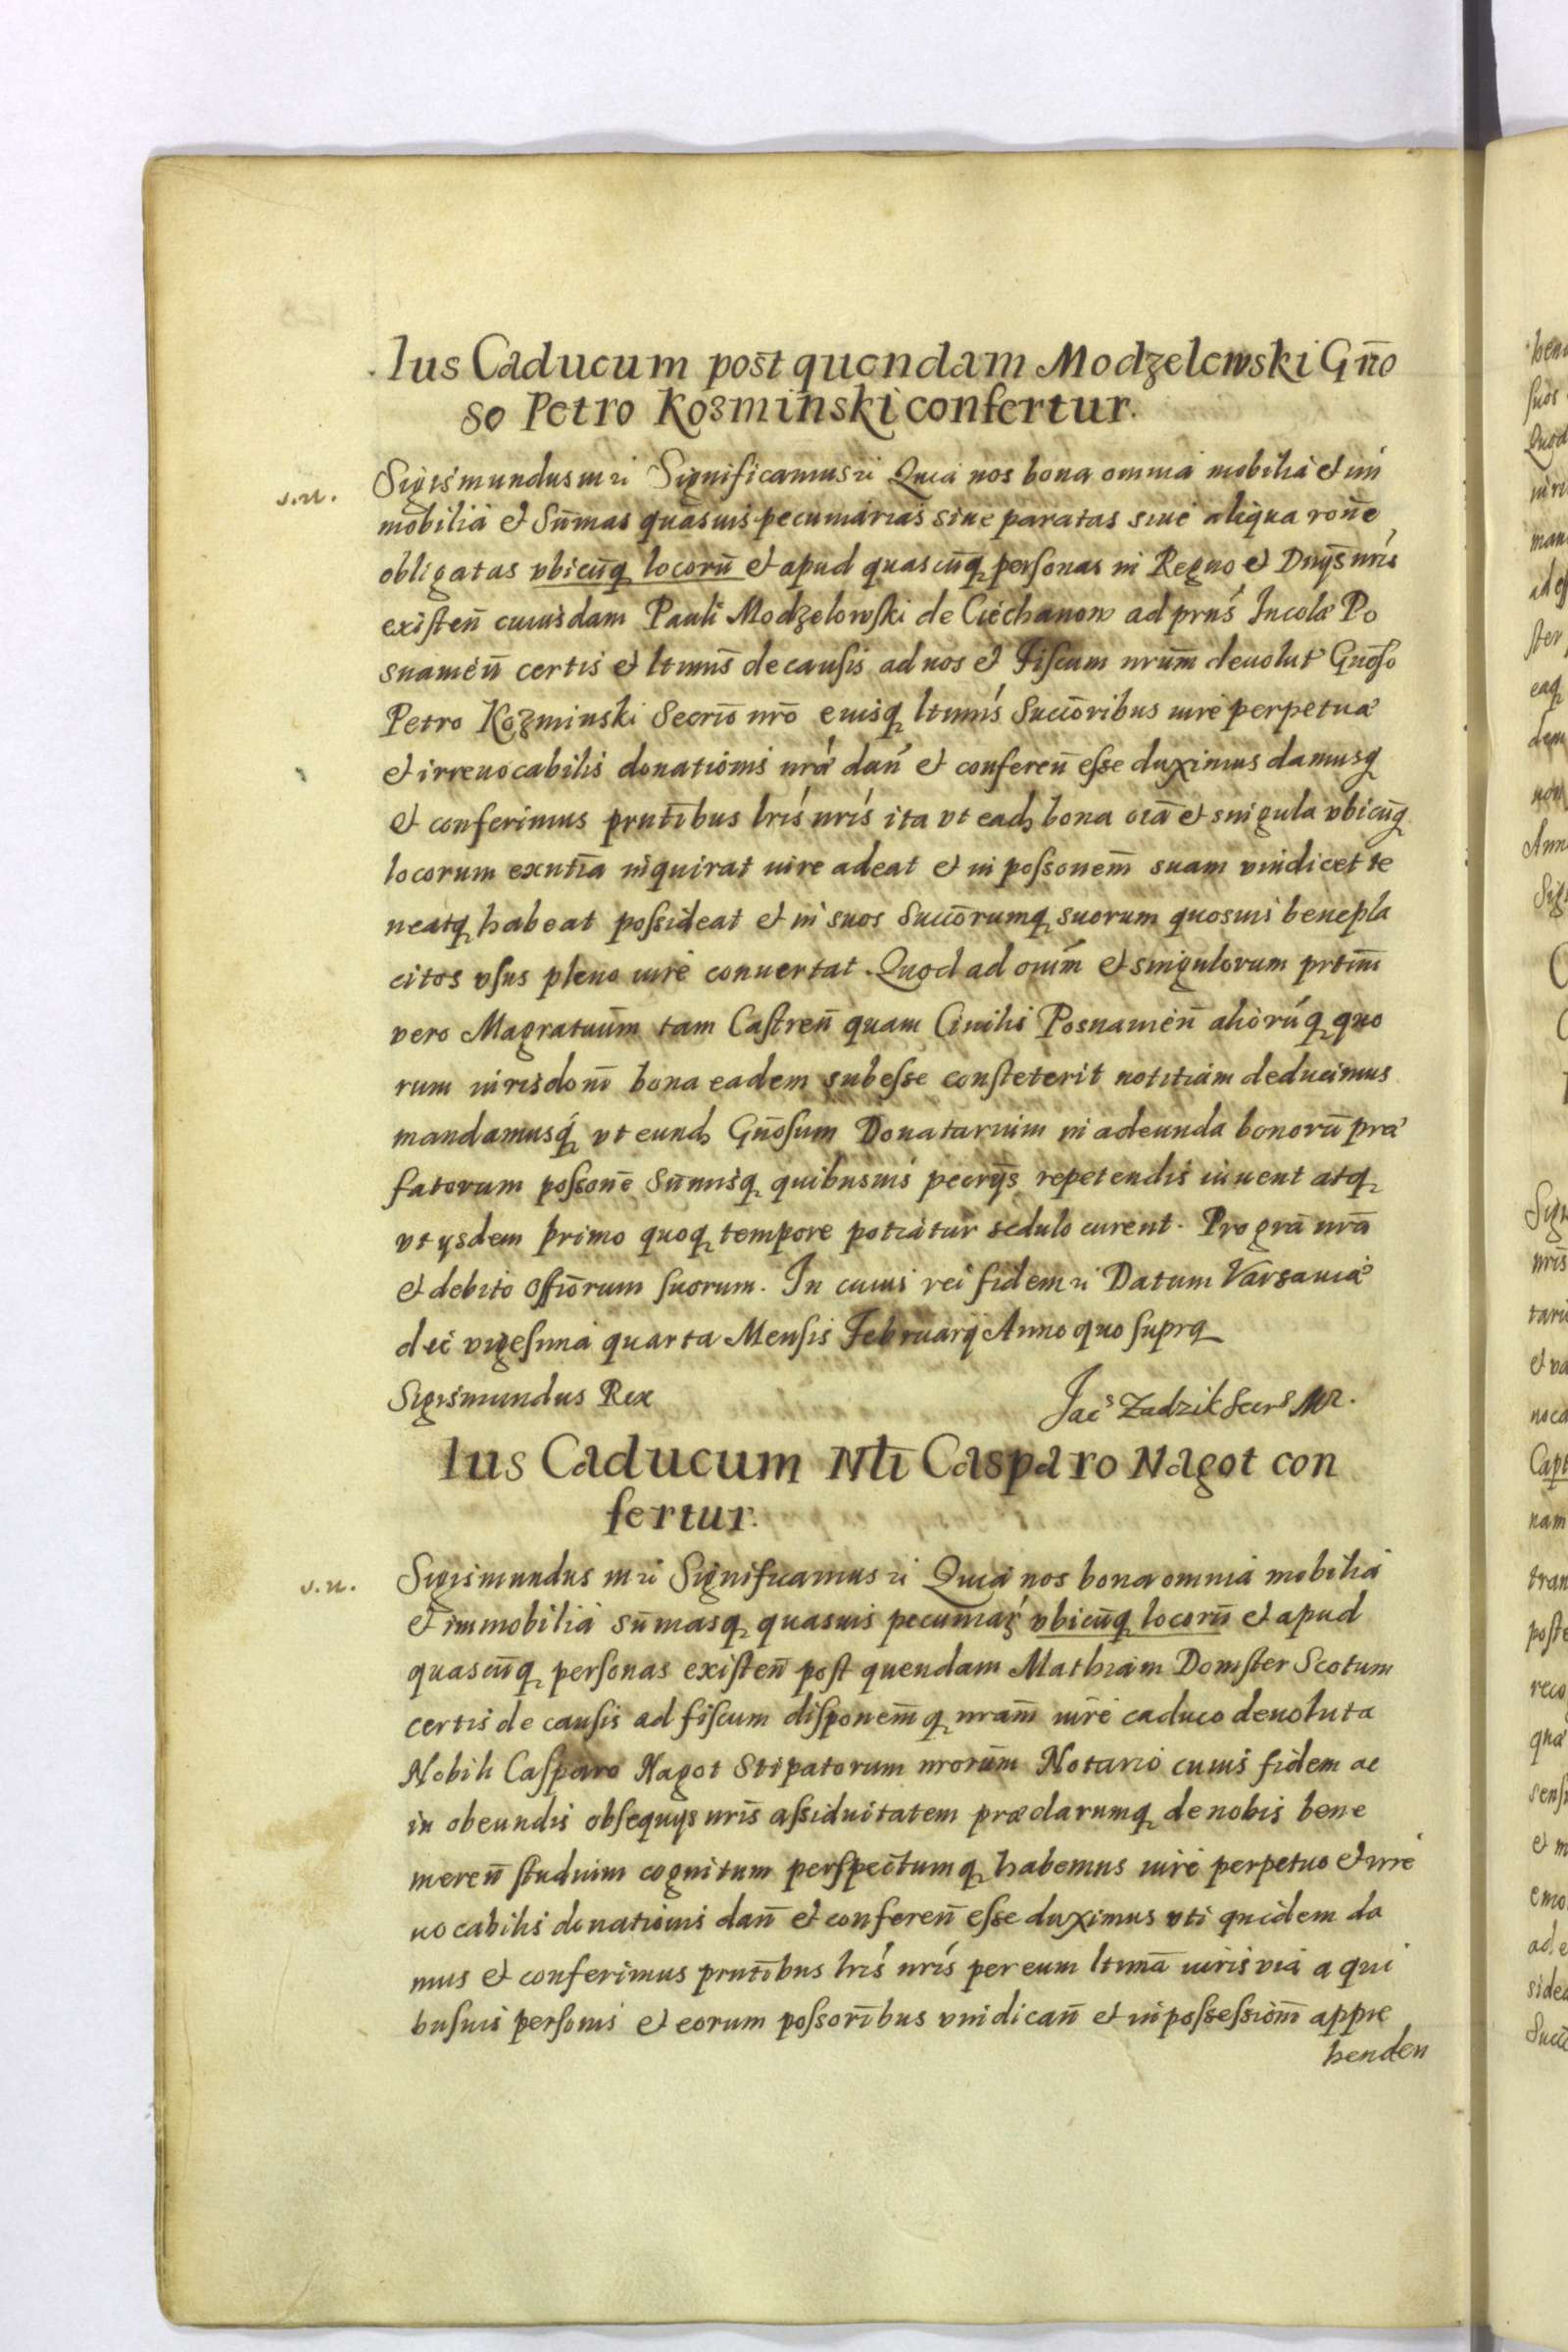 Ius Caducum post quendam Modzelewski Gn̄o
so Petro Kozminski confertur.
v.u.
Sigismundus III &c Significamus &c Quia nos bona omnia mobilia et im
mobilia et Sum̄as quasuis pecuniarias siue paratas siue aliqua rōne
obligatas vbicūq locorū et apud quascūq personas in Regno et Dnijs nrīs
existen̄ cuiusdam Pauli Modzelowski de Ciechanow ad prns Incolæ Po
snamen̄ certis et ltimīs de causis ad nos et Fiscum nrum̄ deuolut Gnōso
Petro Kozminski Secriō nrō eiusq ltimīs Succōribus iure perpetuæ
et irreuocabilis donationis nræ dan̄ et conferen̄ esse duximus damusq
et conferimus prntībus lrīs nrīs ita vt ead bona oīa et singula vbicūq
locorum exntīa inquirat iure adeat et in possonem̄ suam vindicet te
neatq habeat possideat et in suos Succōrumq suorum quosuis benepla
citos vsus pleno iure conuertat. Quod ad oniū̄m et singulorum prtim̄
vero Magratuūm tam Castren̄ quam Ciuilis Posnamen̄ aliorūq quo
rum iurisdoni bona eadem subesse constiterit notitiam deducimus
mandamusq vt eund Gnōsum Donatarium in adeunda bonorū præ
fatorum possonē Sum̄isq quibusuis pecrijs repetendis iuuent atq
vt ijsdem primo quoq tempore potiatur sedulo curent. Pro gra nrā
et debito offiōrum suorum. In cuius rei fidem &c Datum Varsauiæ
die vigesima quarta Mensis Februarij Anno quo supra
Sigismundus Rex
Jacs Zadzik Secrs MR.
Ius Caducum Nli Casparo Nagot con
fertur.
v.u.
Sigismundus III &c Significamus &c Quia nos bona omnia mobilia
et immobilia sum̄asq quasuis pecuniar vbicūq locorū et apud
quascūq personas existen̄ post quendam Mathiam Domster Scotum
certis de causis ad fiscum disponem̄q nram̄ iure caduco deuoluta
Nobili Casparo Nagot Stipatorum nrorūm Notario cuius fidem ac
in obeundis obsequijs nrīs assiduitatem præclarumq de nobis bene
meren̄ studium cognitum perspectumq habemus iure perpetuo et irre
uocabilis donationis dan̄ et conferen̄ esse duximus vti quidem da
mus et conferimus prntībus lrīs nrīs per eum ltimā iuris via a qui
busuis personis et eorum possorībus vindican̄ et in possessiom̄ appre
henden